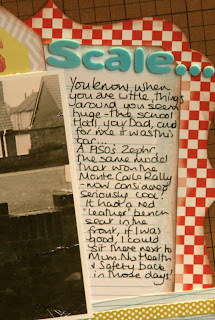 Scale...
You know, when
you are little, things
around you seem
huge - The school
Hall, your Dad, and
for me it was this
car...
A 1950's Zephr
the same model
that won the
Monte Carlo Rally
- now considered
seriously cool!
It had a red
'leather' bench
seat in the
front, if I was
good, I could
sit there next to
Mum. No Health
& Safety back
in those days!